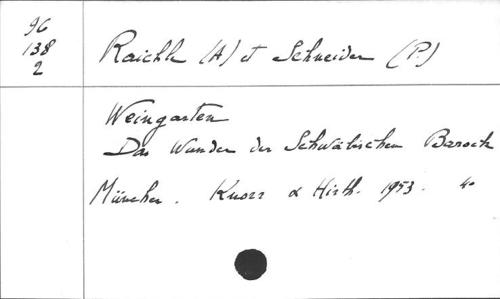 96
138
2
Raichle (A) et Schneider (P.)
Weingarten
Das Wunder des Schwäbischen Barock
München. Knorr & Hirth. 1953. 4°